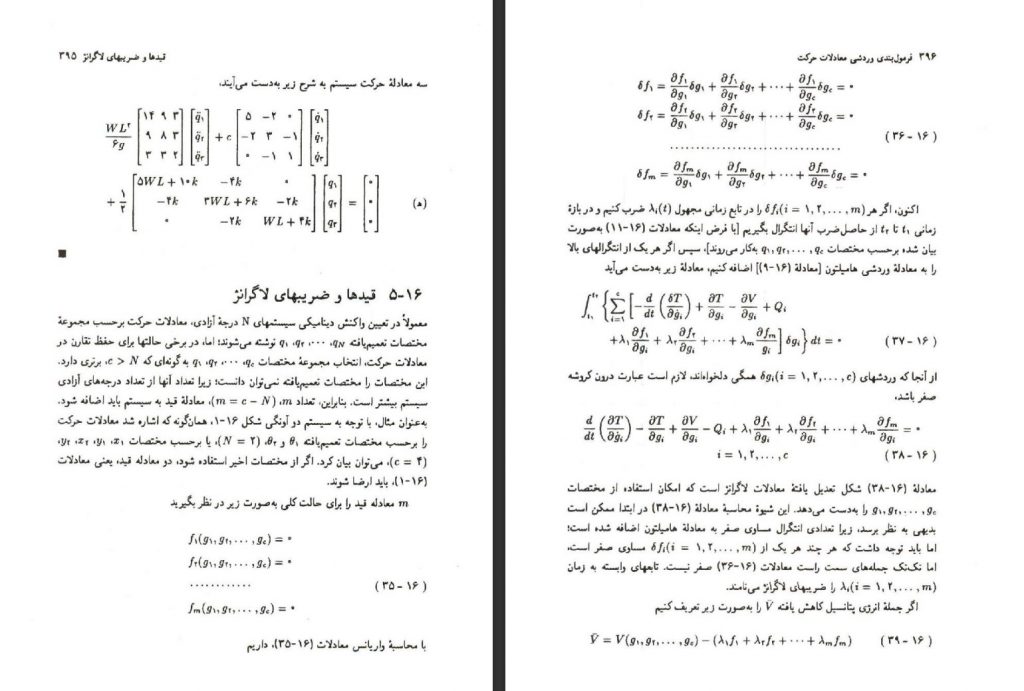 قیدها و ضریبهای لاگرانژ ۳۹۵
سه معادلهٔ حرکت سیستم به شرح زیر به‌دست می‌آیند،
WL²/۶g [۱۴ ۹ ۳; ۹ ۸ ۳; ۳ ۳ ۲] [q̈₁; q̈₂; q̈₃] + c [۵ −۲ ۰; −۲ ۳ −۱; ۰ −۱ ۱] [q̇₁; q̇₂; q̇₃]
+ ۱/۲ [۵WL + ۱۰k −۴k ۰; −۴k ۳WL + ۶k −۲k; ۰ −۲k WL + ۴k] [q₁; q₂; q₃] = [۰; ۰; ۰] (ه)
■
۱۶-۵ قیدها و ضریبهای لاگرانژ
معمولاً در تعیین واکنش دینامیکی سیستمهای N درجهٔ آزادی، معادلات حرکت برحسب مجموعهٔ
مختصات تعمیم‌یافته q₁، q₂، ...، q_N نوشته می‌شوند؛ اما، در برخی حالتها برای حفظ تقارن در
معادلات حرکت، انتخاب مجموعهٔ مختصات q₁، q₂، ...، q_c به گونه‌ای که c > N، برتری دارد.
این مختصات را مختصات تعمیم‌یافته نمی‌توان دانست؛ زیرا تعداد آنها از تعداد درجه‌های آزادی
سیستم بیشتر است. بنابراین، تعداد m، (m = c − N)، معادلهٔ قید به سیستم باید اضافه شود.
به‌عنوان مثال، با توجه به سیستم دو آونگی شکل ۱۶-۱، همان‌گونه که اشاره شد معادلات حرکت
را برحسب مختصات تعمیم‌یافته θ₁ و θ₂، (N = ۲)، یا برحسب مختصات x₁، y₁، x₂، y₂،
(c = ۴)، می‌توان بیان کرد. اگر از مختصات اخیر استفاده شود، دو معادله قید، یعنی معادلات
(۱۶-۱)، باید ارضا شوند.
m معادله قید را برای حالت کلی به‌صورت زیر در نظر بگیرید
f₁(g₁, g₂, ..., g_c) = ۰
f₂(g₁, g₂, ..., g_c) = ۰
........... (۱۶ - ۳۵)
f_m(g₁, g₂, ..., g_c) = ۰
با محاسبهٔ واریانس معادلات (۱۶-۳۵)، داریم
۳۹۶ فرمول‌بندی وردشی معادلات حرکت
δf₁ = ∂f₁/∂g₁ δg₁ + ∂f₁/∂g₂ δg₂ + ··· + ∂f₁/∂g_c δg_c = ۰
δf₂ = ∂f₂/∂g₁ δg₁ + ∂f₂/∂g₂ δg₂ + ··· + ∂f₂/∂g_c δg_c = ۰
.................................... (۱۶ - ۳۶)
δf_m = ∂f_m/∂g₁ δg₁ + ∂f_m/∂g₂ δg₂ + ··· + ∂f_m/∂g_c δg_c = ۰
اکنون، اگر هر δf_i(i = ۱, ۲, ..., m) را در تابع زمانی مجهول λ_i(t) ضرب کنیم و در بازهٔ
زمانی t₁ تا t₂ از حاصل‌ضرب آنها انتگرال بگیریم [با فرض اینکه معادلات (۱۶-۱۱) به‌صورت
بیان شده برحسب مختصات q₁, q₂, ..., q_c به‌کار می‌روند]، سپس اگر هر یک از انتگرالهای بالا
را به معادلهٔ وردشی هامیلتون [معادلهٔ (۱۶-۹)] اضافه کنیم، معادلهٔ زیر به‌دست می‌آید
∫_{t₁}^{t₂} { Σ_{i=۱}^{c} [ −d/dt (δT/∂ġ_i) + ∂T/∂g_i − ∂V/∂g_i + Q_i
+λ₁ ∂f₁/∂g_i + λ₂ ∂f₂/∂g_i + ··· + λ_m ∂f_m/g_i ] δg_i } dt = ۰ (۱۶ - ۳۷)
از آنجا که وردشهای δg_i(i = ۱, ۲, ..., c) همگی دلخواه‌اند، لازم است عبارت درون کروشه
صفر باشد،
d/dt (∂T/∂ġ_i) − ∂T/∂g_i + ∂V/∂g_i − Q_i + λ₁ ∂f₁/∂g_i + λ₂ ∂f₂/∂g_i + ··· + λ_m ∂f_m/∂g_i = ۰
i = ۱, ۲, ..., c (۱۶ - ۳۸)
معادلهٔ (۱۶-۳۸) شکل تعدیل یافتهٔ معادلات لاگرانژ است که امکان استفاده از مختصات
g₁, g₂, ..., g_c را به‌دست می‌دهد. این شیوهٔ محاسبهٔ معادلهٔ (۱۶-۳۸) در ابتدا ممکن است
بدیهی به نظر برسد، زیرا تعدادی انتگرال مساوی صفر به معادلهٔ هامیلتون اضافه شده است؛
اما باید توجه داشت که هر چند هر یک از δf_i(i = ۱, ۲, ..., m) مساوی صفر است،
اما تک‌تک جمله‌های سمت راست معادلات (۱۶-۳۶) صفر نیست. تابعهای وابسته به زمان
λ_i(i = ۱, ۲, ..., m) را ضریبهای لاگرانژ می‌نامند.
اگر جملهٔ انرژی پتانسیل کاهش یافته V̄ را به‌صورت زیر تعریف کنیم
V̄ = V(g₁, g₂, ..., g_c) − (λ₁f₁ + λ₂f₂ + ··· + λ_mf_m) (۱۶ - ۳۹)